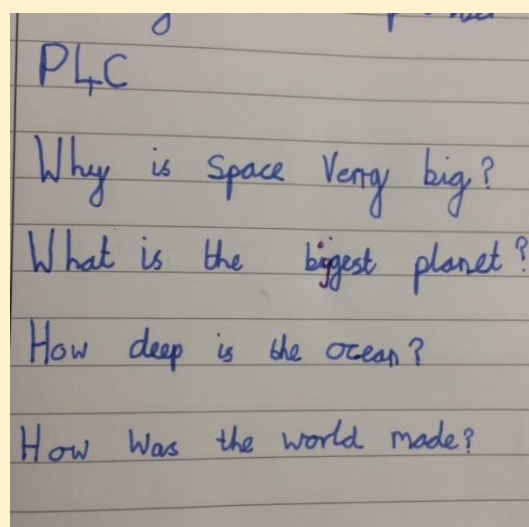 P4C
Why is space Verry big?
What is the biggest planet?
How deep is the ocean?
How was the world made?